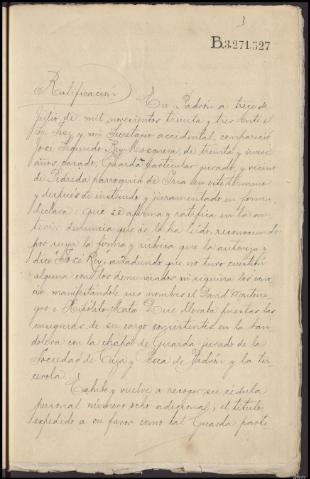 3
B.3.271.327
Ratificación En Padrón a trece de
Julio de mil novecientos treinta y tres ante el
Sr. Juez y mi Secretario accidental, compareció
José Segundo Rey de treinta y nueve
años, casado, Guarda particular jurado, y vecino
de parroquia de Iria en este término
y después de instruido y juramentado en forma,
declara: que se afirma y ratifica en la an-
terior denuncia que se le ha leido, reconocien-
do por suya la forma y rúbrica que la autoriza y
dice José Rey, añadiendo que no tuvo cuestión
alguna con los denunciados ni siquiera los cono-
cía, manifestándole sus nombres el David
que e Hipólito Mata Dice llevaba puestas las
insignias de su cargo consistentes en la ban-
dolera con la chapa de Guarda jurado de la
Sociedad de Caza y Pesca de Padrón y la ter-
cerola.
Exhibe y vuelve a recoger su cédula
personal número ocho adicional, el título
expedido a su favor como tal Guarda parti-